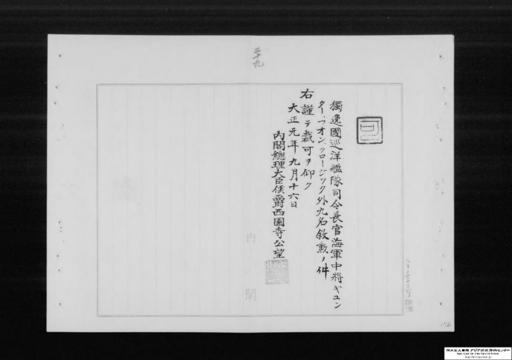 獨逸國巡洋艦隊司令長官海軍中將ギュン
ター、フォン、クロージック外九名敍勲ノ件
右謹テ裁可ヲ仰ク
大正元年九月十六日
内閣總理大臣侯爵西園寺公望
内閣